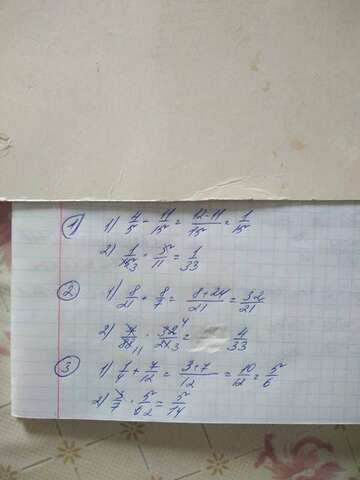 1) 1) 4/5 - 11/15 = 12-11/15 = 1/15
2) 1/15 3 · 5/11 = 1/33
2) 1) 8/21 + 8/7 = 8+24/21 = 32/21
2) 11 · 32 4/21 3 = 4/33
3) 1) 1/4 + 7/12 = 3+7/12 = 10/12 = 5/6
2) 3/7 · 5/6 2 = 5/14